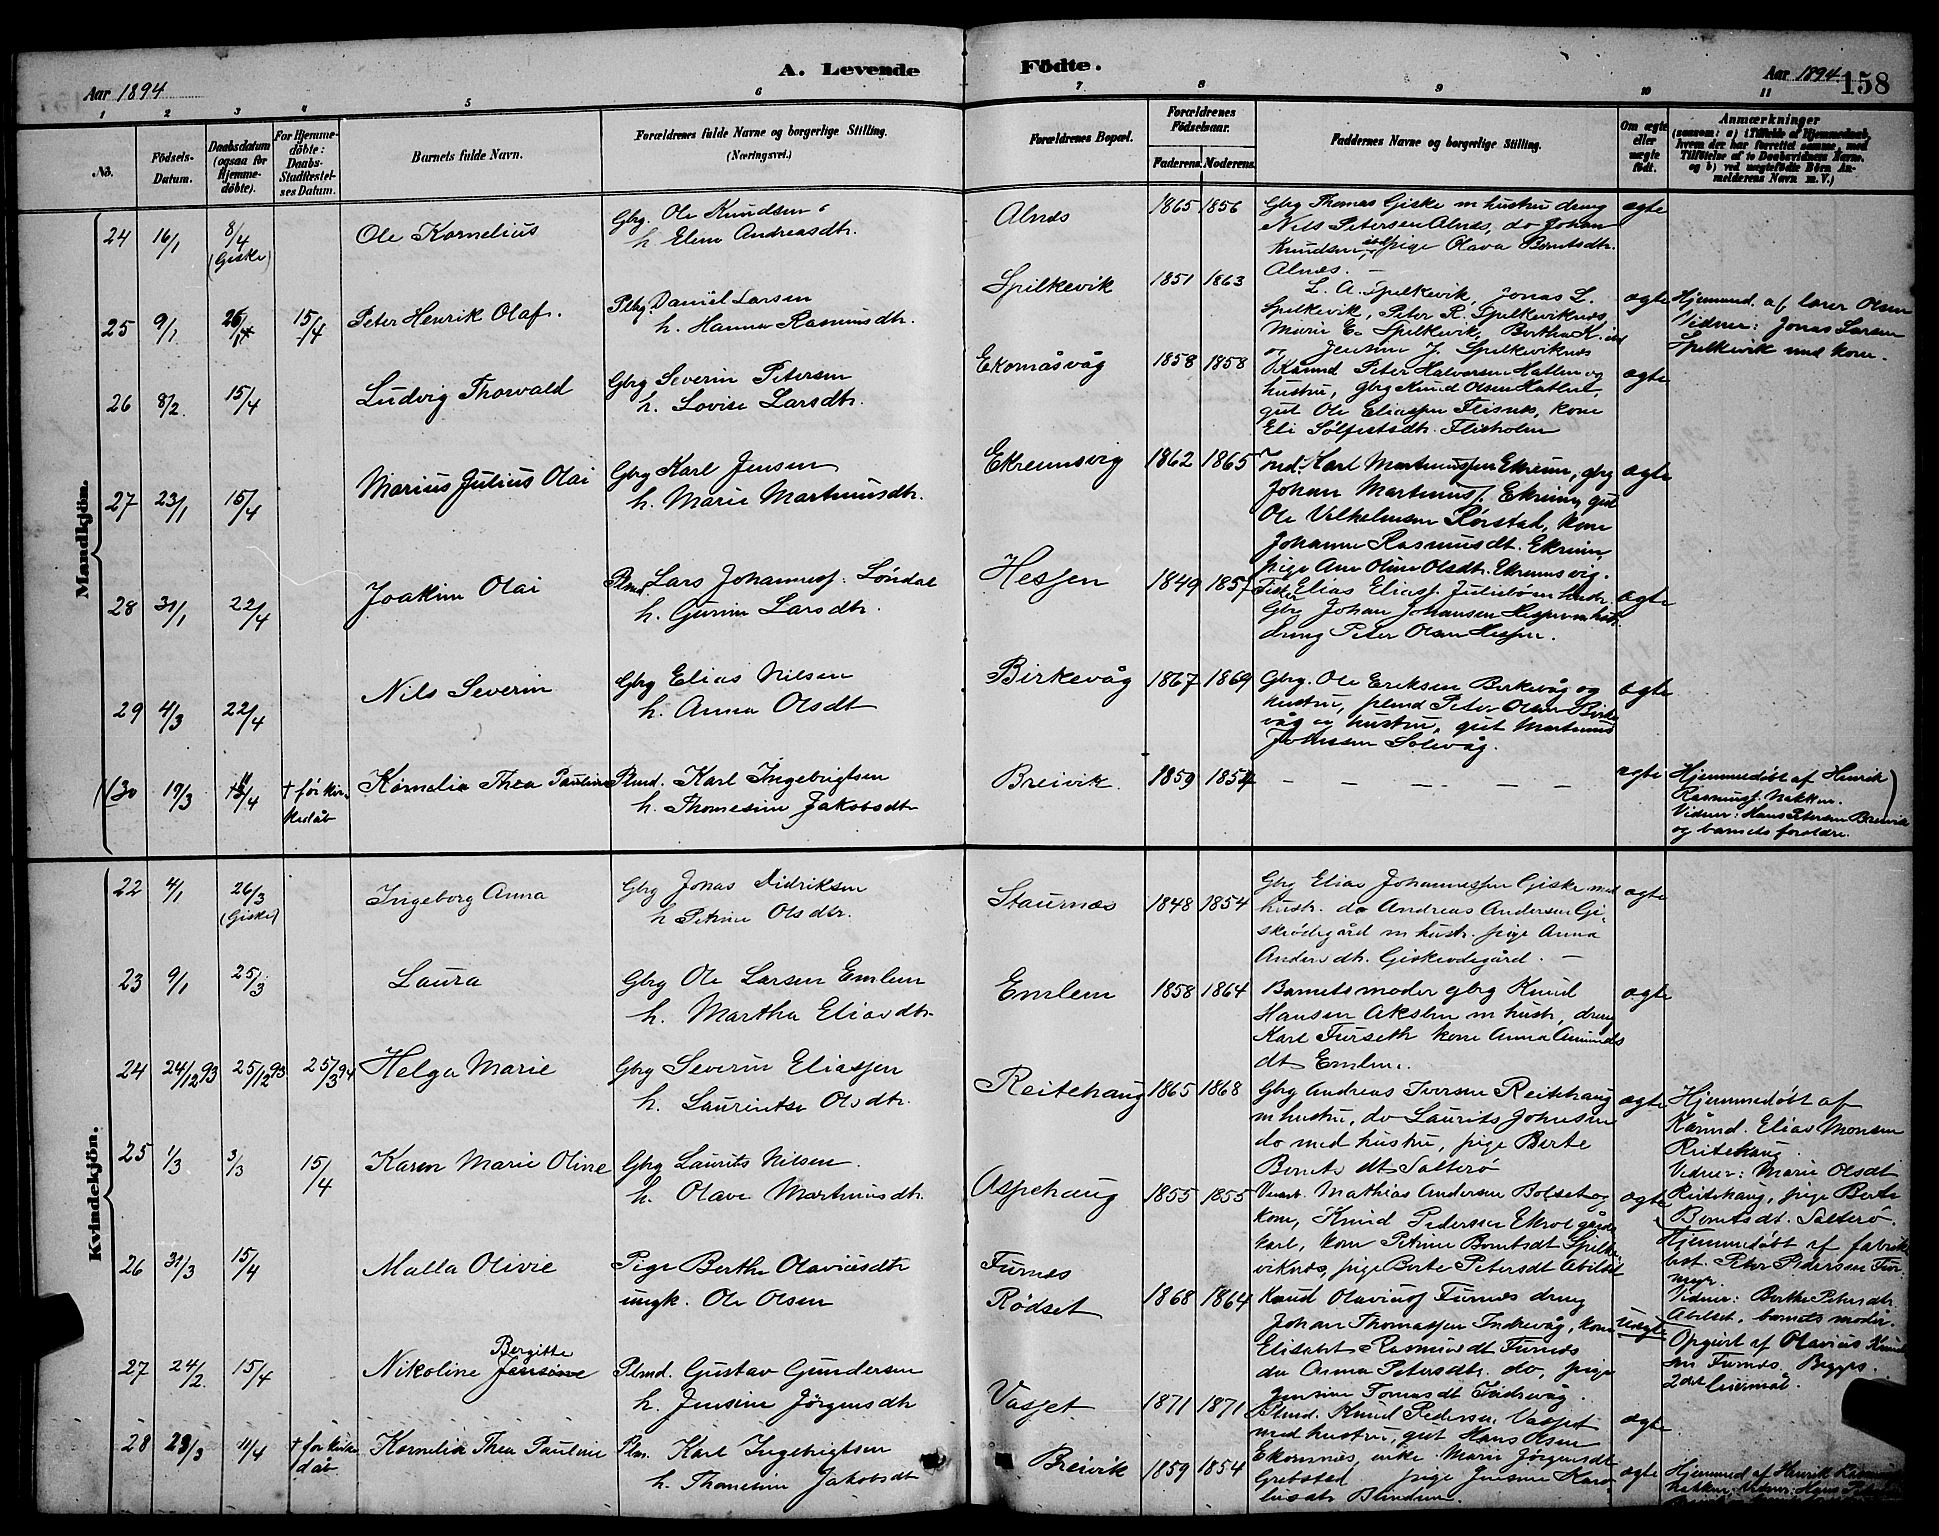 Aar 1894
A. Levende
Födte.
Aar 1894
158
1 2 3 4 5 6 7 8 9 10 11
No.
Födsels-
Datum.
Daabsdatum
(ogsaa for
Hjemme-
döbte).
For Hjemme-
döbte:
Daabs-
Stadfæstel-
ses Datum.
Barnets fulde Navn.
Forældrenes fulde Navne og borgerlige Stilling.
(Næringsvei.)
Forældrenes Bopæl.
Forældrenes
Födselsaar.
Faderens.
Moderens.
Faddernes Navne og borgerlige Stilling.
Om ægte
eller
uægte
født.
Anmærkninger
(saasom: a) i Tilfælde af Hjemmedaab,
hvem der har forrettet samme, med
Tilföielse af to Daabsvidners Navne,
og b) ved uægtefödte Börn An-
melderens Navn m. V.)
Mandkjön.
24 16/1 8/4 (Giske)
Ole Kornelius
Gbrg. Ole Knudsen
h. Elen Andreasdtr.
Alnes
1865 1856
Gbrg Thomas Giske m hustru dreng
Nils Petersen Alnes, do Johan
Knudsen, pige Olava Berntsdtr.
Alnes. —
ægte
25 9/1 15/4
Peter Henrik Olaf.
Daniel Larsen
h. Hanna Rasmusdtr.
Spilkevik
1851 1863
L. A. Spilkevik, Jonas L.
Spilkevik, Peter R. Spilkeviknes
Marie E. Spilkevik, Bertha K.
og Jensine J. Spilkeviknes
ægte
Hjemmed. af lærer Olsen
Vidner: Jonas Larsen
Spilkevik med kone.
26 8/2 15/4
Ludvig Thorvald
Gbrg Severin Petersen
h. Lovise Larsdtr.
Ekornåsvåg
1858 1858
Peter Halvorsen Hatlen og
hustru, gbrg Knud Olsen Hatlen,
gut Ole Eliassen Flisnes, kone
Eli Sölfestsdtr. Flisholm
ægte
27 23/1 15/4
Marius Julius Olai
Gbrg Karl Jensen
h. Marie Martinusdtr.
Ekremsvig
1862 1865
Ind. Karl Martinussen Ekrem, gbrg
Johan Martinuss. Ekrem, gut
Ole Vilhelmsen Rørstad, kone
Johanne Rasmusdt. Ekrem,
pige Ane Oline Olsdtr. Ekremsvig.
ægte
28 31/1 22/4
Joakim Olai
Plmd. Lars Johanness. Löndal
h. Gurine Larsdtr.
Hessen
1849 1857
Fisker Elias Eliass. m hustr
Gbrg Johan Johansen Hessen m hust.
dreng Peter Olsen Hessen.
ægte
29 4/3 22/4
Nils Severin
Gbrg Elias Nilsen
h. Anna Olsdt
Birkevåg
1867 1869
Gbrg. Ole Eriksen Birkevåg og
hustru, plmd Peter Olsen Birke
våg og hustru, gut Martinus
Johnsen Solevåg.
ægte
30 19/3 † før kir-
kedåb
Kornelia Thea Pauline
Plmd. Karl Ingebrigtsen
h. Thomesine Jakobsdtr
Breivik
1859 1854
— — — — —
ægte
Hjemmedøbt af Henrik
Rasmuss. Nakken.
Vidner: Hans Petersen Breivik
og barnets forældre.
Kvindekjön.
22 4/1 26/3 (Giske)
Ingeborg Anna
Gbrg Jonas Didriksen
h Petrine Olsdtr.
Staurnes
1848 1854
Gbrg Elias Johannessen Giske med
hustr. do Andreas Andersen Gi-
skeödegård m hustr. pige Anna
Andersdtr. Giskeödegård. —
ægte
23 9/1 25/3
Laura
Gbrg Ole Larsen Emlem
h. Martha Eliasdtr.
Emlem
1858 1864
Barnets moder gbrg Knud
Hansen Akslen m hustr, dreng
Karl Furseth kone Anna Amunds
dt Emlem.
ægte
24 24/12 93 25/12 93 25/3 94
Helga Marie
Gbrg Severin Eliassen
h. Laurintse Olsdtr.
Reitehaug
1865 1868
Gbrg Andreas Iversen Reitehaug
m hustru, do Laurits Johnsen
do med hustru, pige Berte
Bernts dt Salterö
ægte
Hjemmedøbt af
Kårmd. Elias Monsen
Reitehaug.
Vidner: Marie Olsdt
Reitehaug, pige Berte
Berntsdt. Salterö.
25 1/3 3/3 15/4
Karen Marie Oline
Gbrg Laurits Nilsen.
h. Olave Martinusdtr.
Aspehaug
1855 1855
Mathias Andersen Bolset og
kone, Knud Pedersen Ekrol gårds
karl, kone Petrine Berntsdt Spilke
viknes, pige Berte Petersdt Abilset
ægte
Hjemmedøbt af fabrik
best. Peter Pedersen Fur-
myr.
Vidner: Berthe Petersdtr.
Abilset, barnets moder.
26 31/3 15/4
Malla Olivie
Pige Berthe Olaviusdtr
ungk. Ole Olsen
Furnes
Rödset
1868 1864
Kaud Olavius Furnes dreng
Johan Thomassen Indrevåg, kone
Elisabet Rasmusdt Furnes
do Anna Petersdtr. do, pige
Jensine Tomasdt Indrevåg.
Uægte
Opgivet af Olavius Knud
sen Furnes. Begges
2det leiermål.
27 24/2 15/4
Bergitte
Nikoline Jensine
Plmd. Gustav Gundersen
h. Jensine Jörgensdtr
Vasset
1871 1871
Plmd. Knud Pedersen Vasset
med hustru, gut Hans Olsen
Ekornnes, enke Marie Jörgensdt
Grebstad pige Jensine Karo
lusdtr Blindem.
ægte
28 23/3 11/4 † før kirke
dåb.
Kornelia Thea Pauline
Plm. Karl Ingebrigtsen
h. Thomesine Jakobsdt
Breivik
1859 1854
ægte
Hjemmed af Henrik Rasmus
Nakken. Vidner: Hans